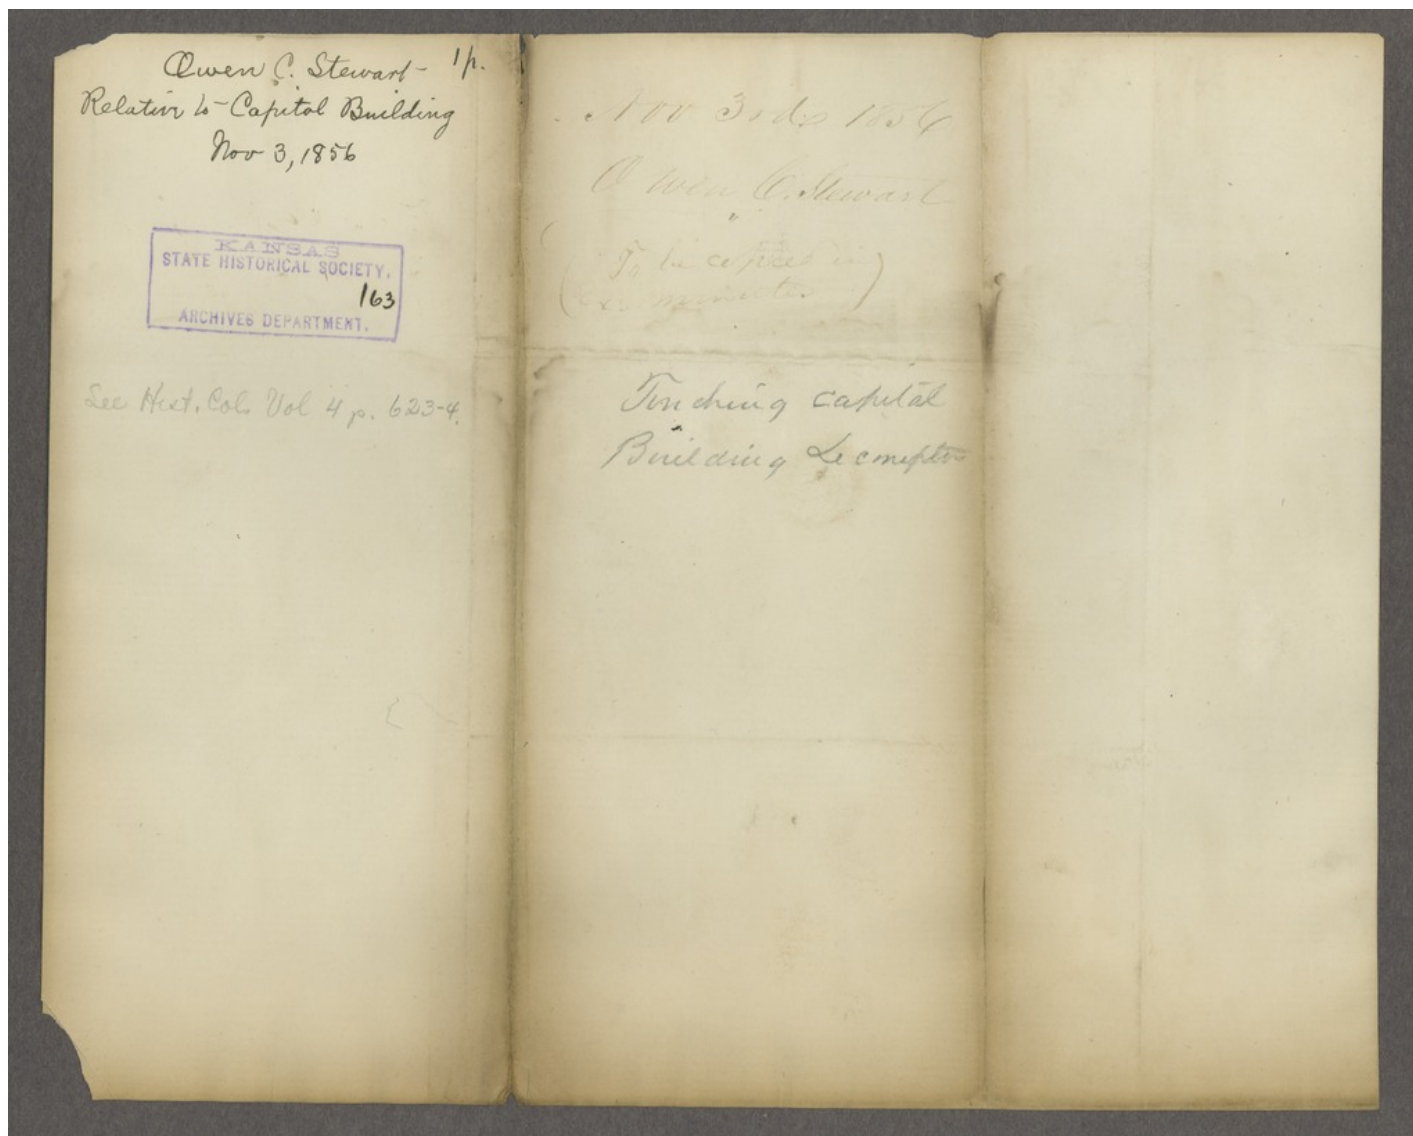 Owen C. Stewart - 1p.
Relative to Capitol Building
Nov 3, 1856
KANSAS
STATE HISTORICAL SOCIETY.
163
ARCHIVES DEPARTMENT.
See Hist. Col. Vol 4 p. 623-4.
Nov 3rd 1856
Owen C. Stewart
(To be copied in
ex. minutes)
Touching capital
Building Lecompton